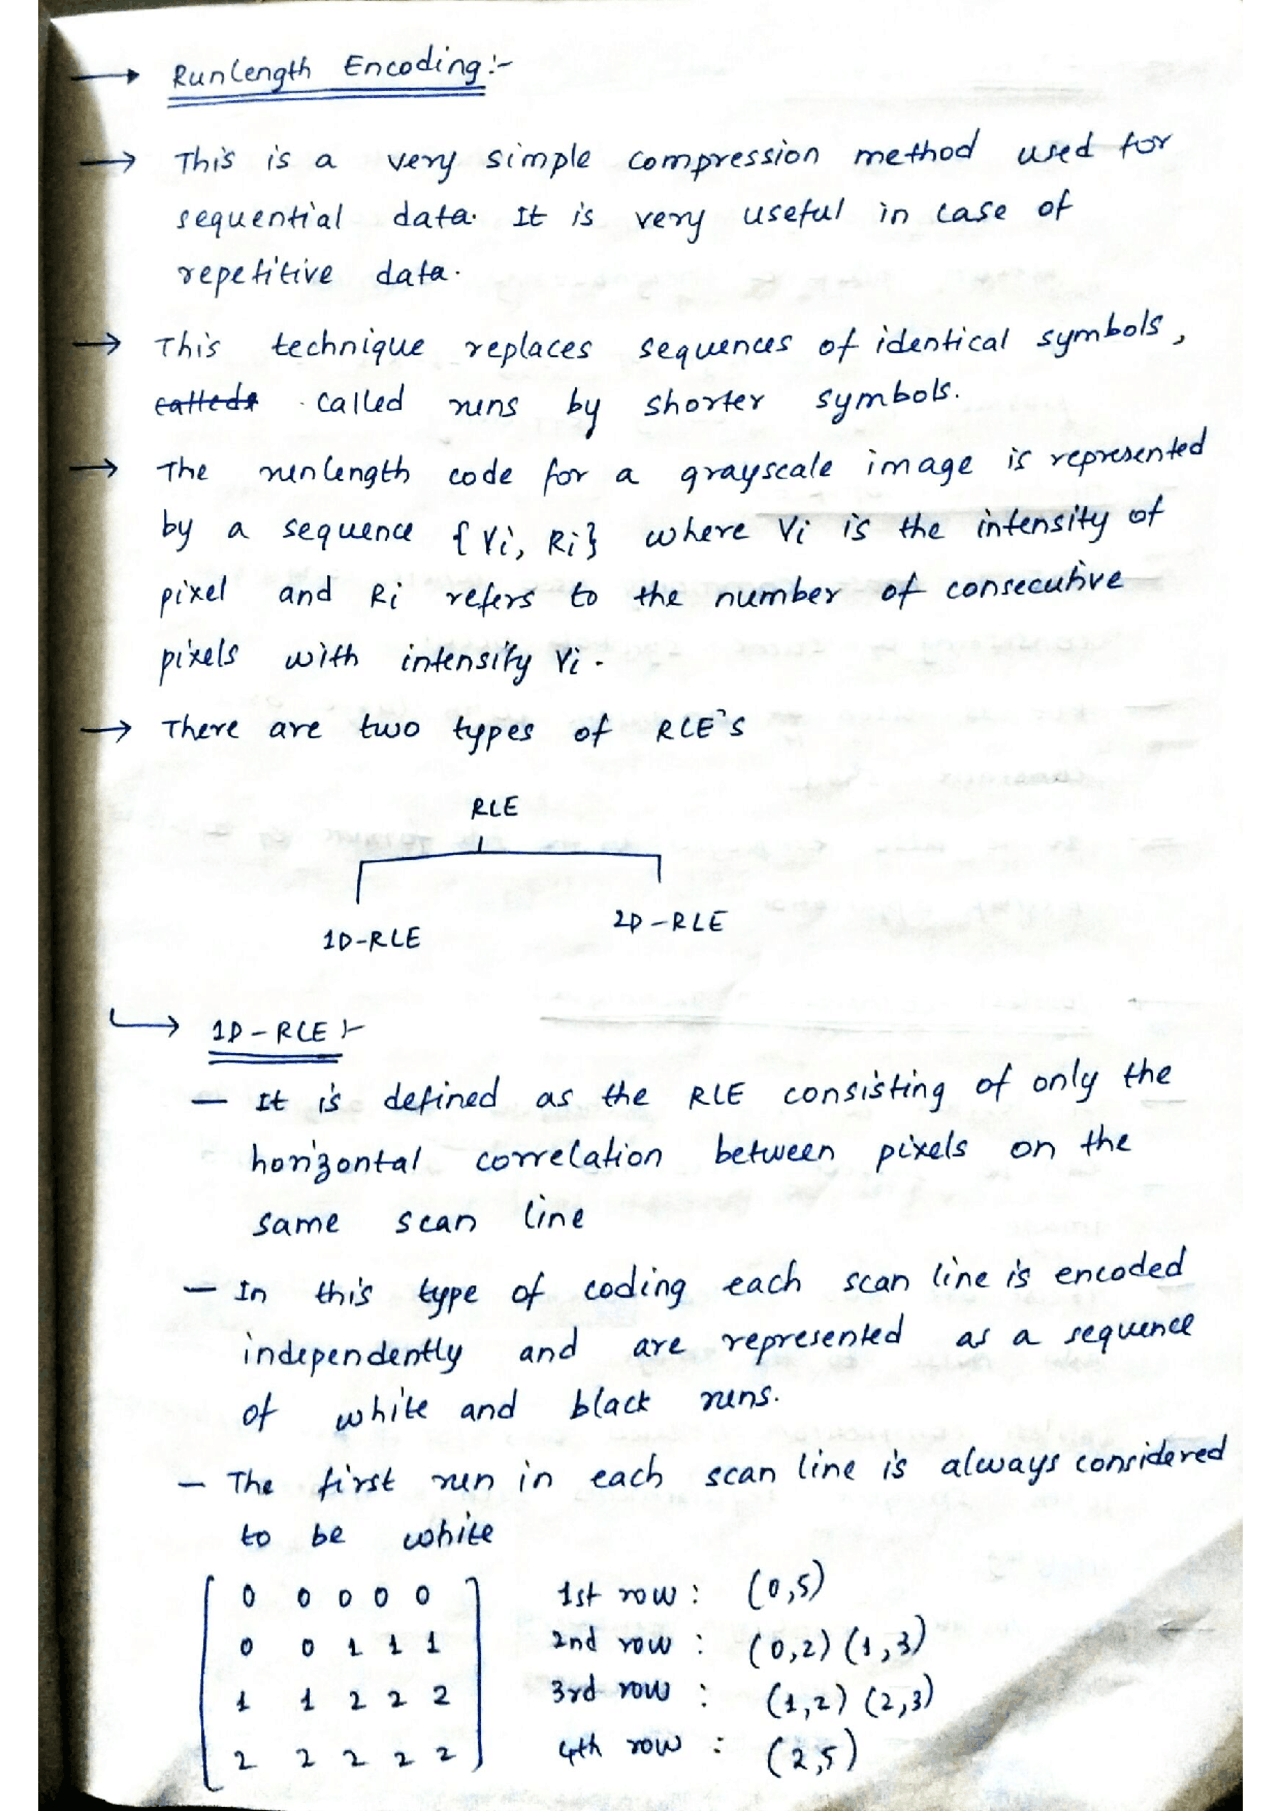 → Runlength Encoding :-
→ This is a very simple compression method used for
sequential data. It is very useful in case of
repetitive data.
→ This technique replaces sequences of identical symbols,
called runs by shorter symbols.
→ The runlength code for a grayscale image is represented
by a sequence {Vi, Ri} where Vi is the intensity of
pixel and Ri refers to the number of consecutive
pixels with intensity Vi.
→ There are two types of RLE's
RLE
1D-RLE 2D-RLE
→ 1D-RLE :-
- It is defined as the RLE consisting of only the
horizontal correlation between pixels on the
same scan line
- In this type of coding each scan line is encoded
independently and are represented as a sequence
of white and black runs.
- The first run in each scan line is always considered
to be white
0 0 0 0 0 1st row : (0,5)
0 0 1 1 1 2nd row : (0,2) (1,3)
1 1 2 2 2 3rd row : (1,2) (2,3)
2 2 2 2 2 4th row : (2,5)